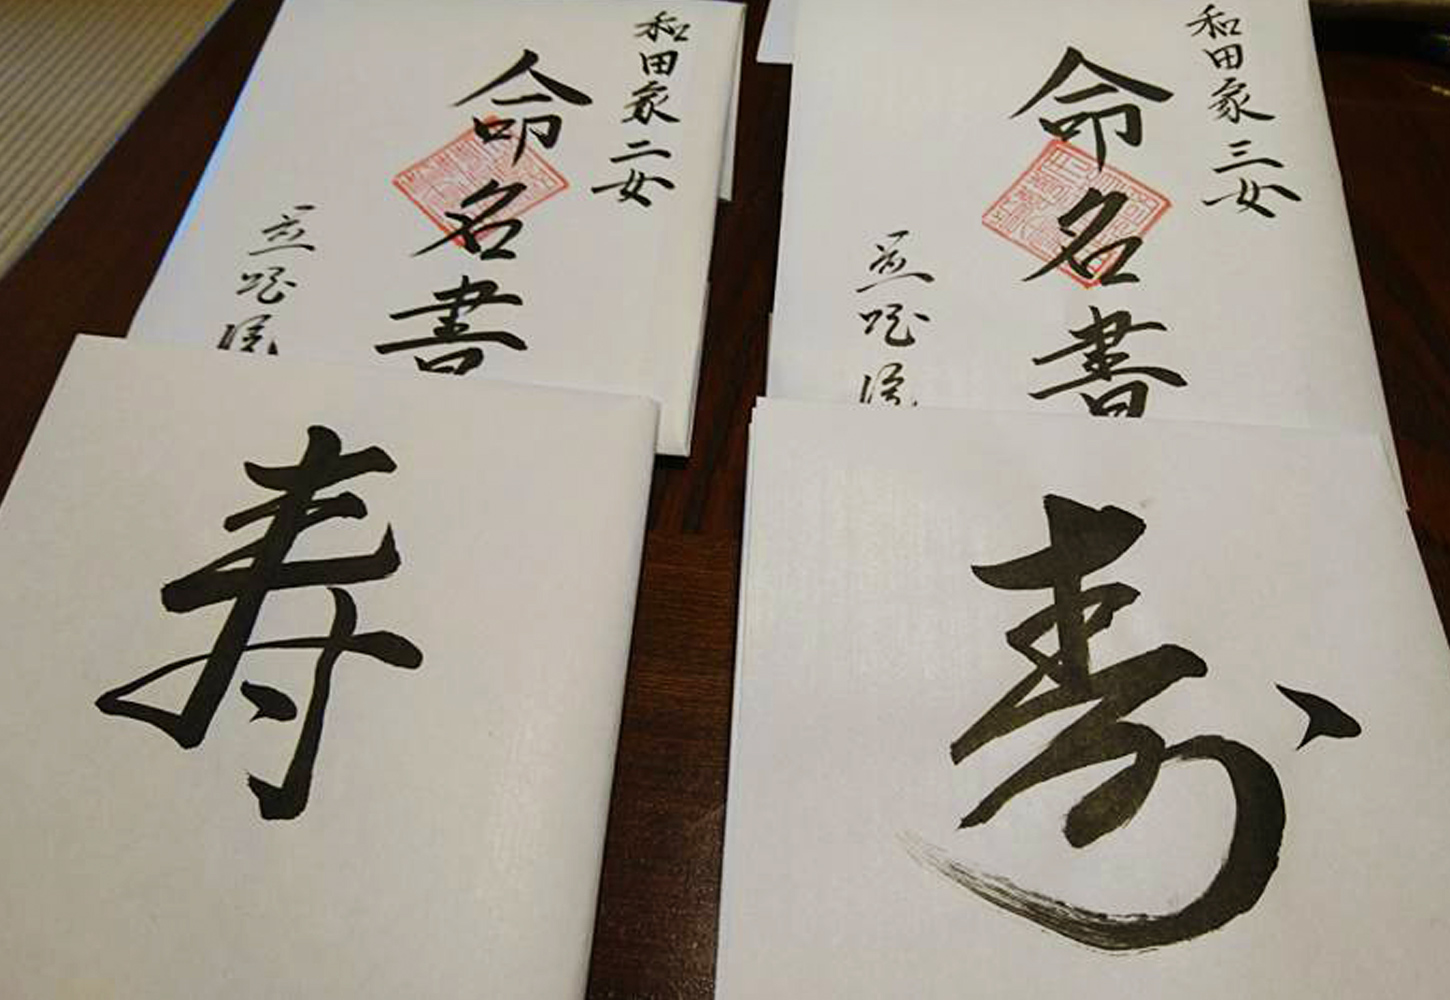 和田家三女
命名書
和田家二女
命名書
寿
寿